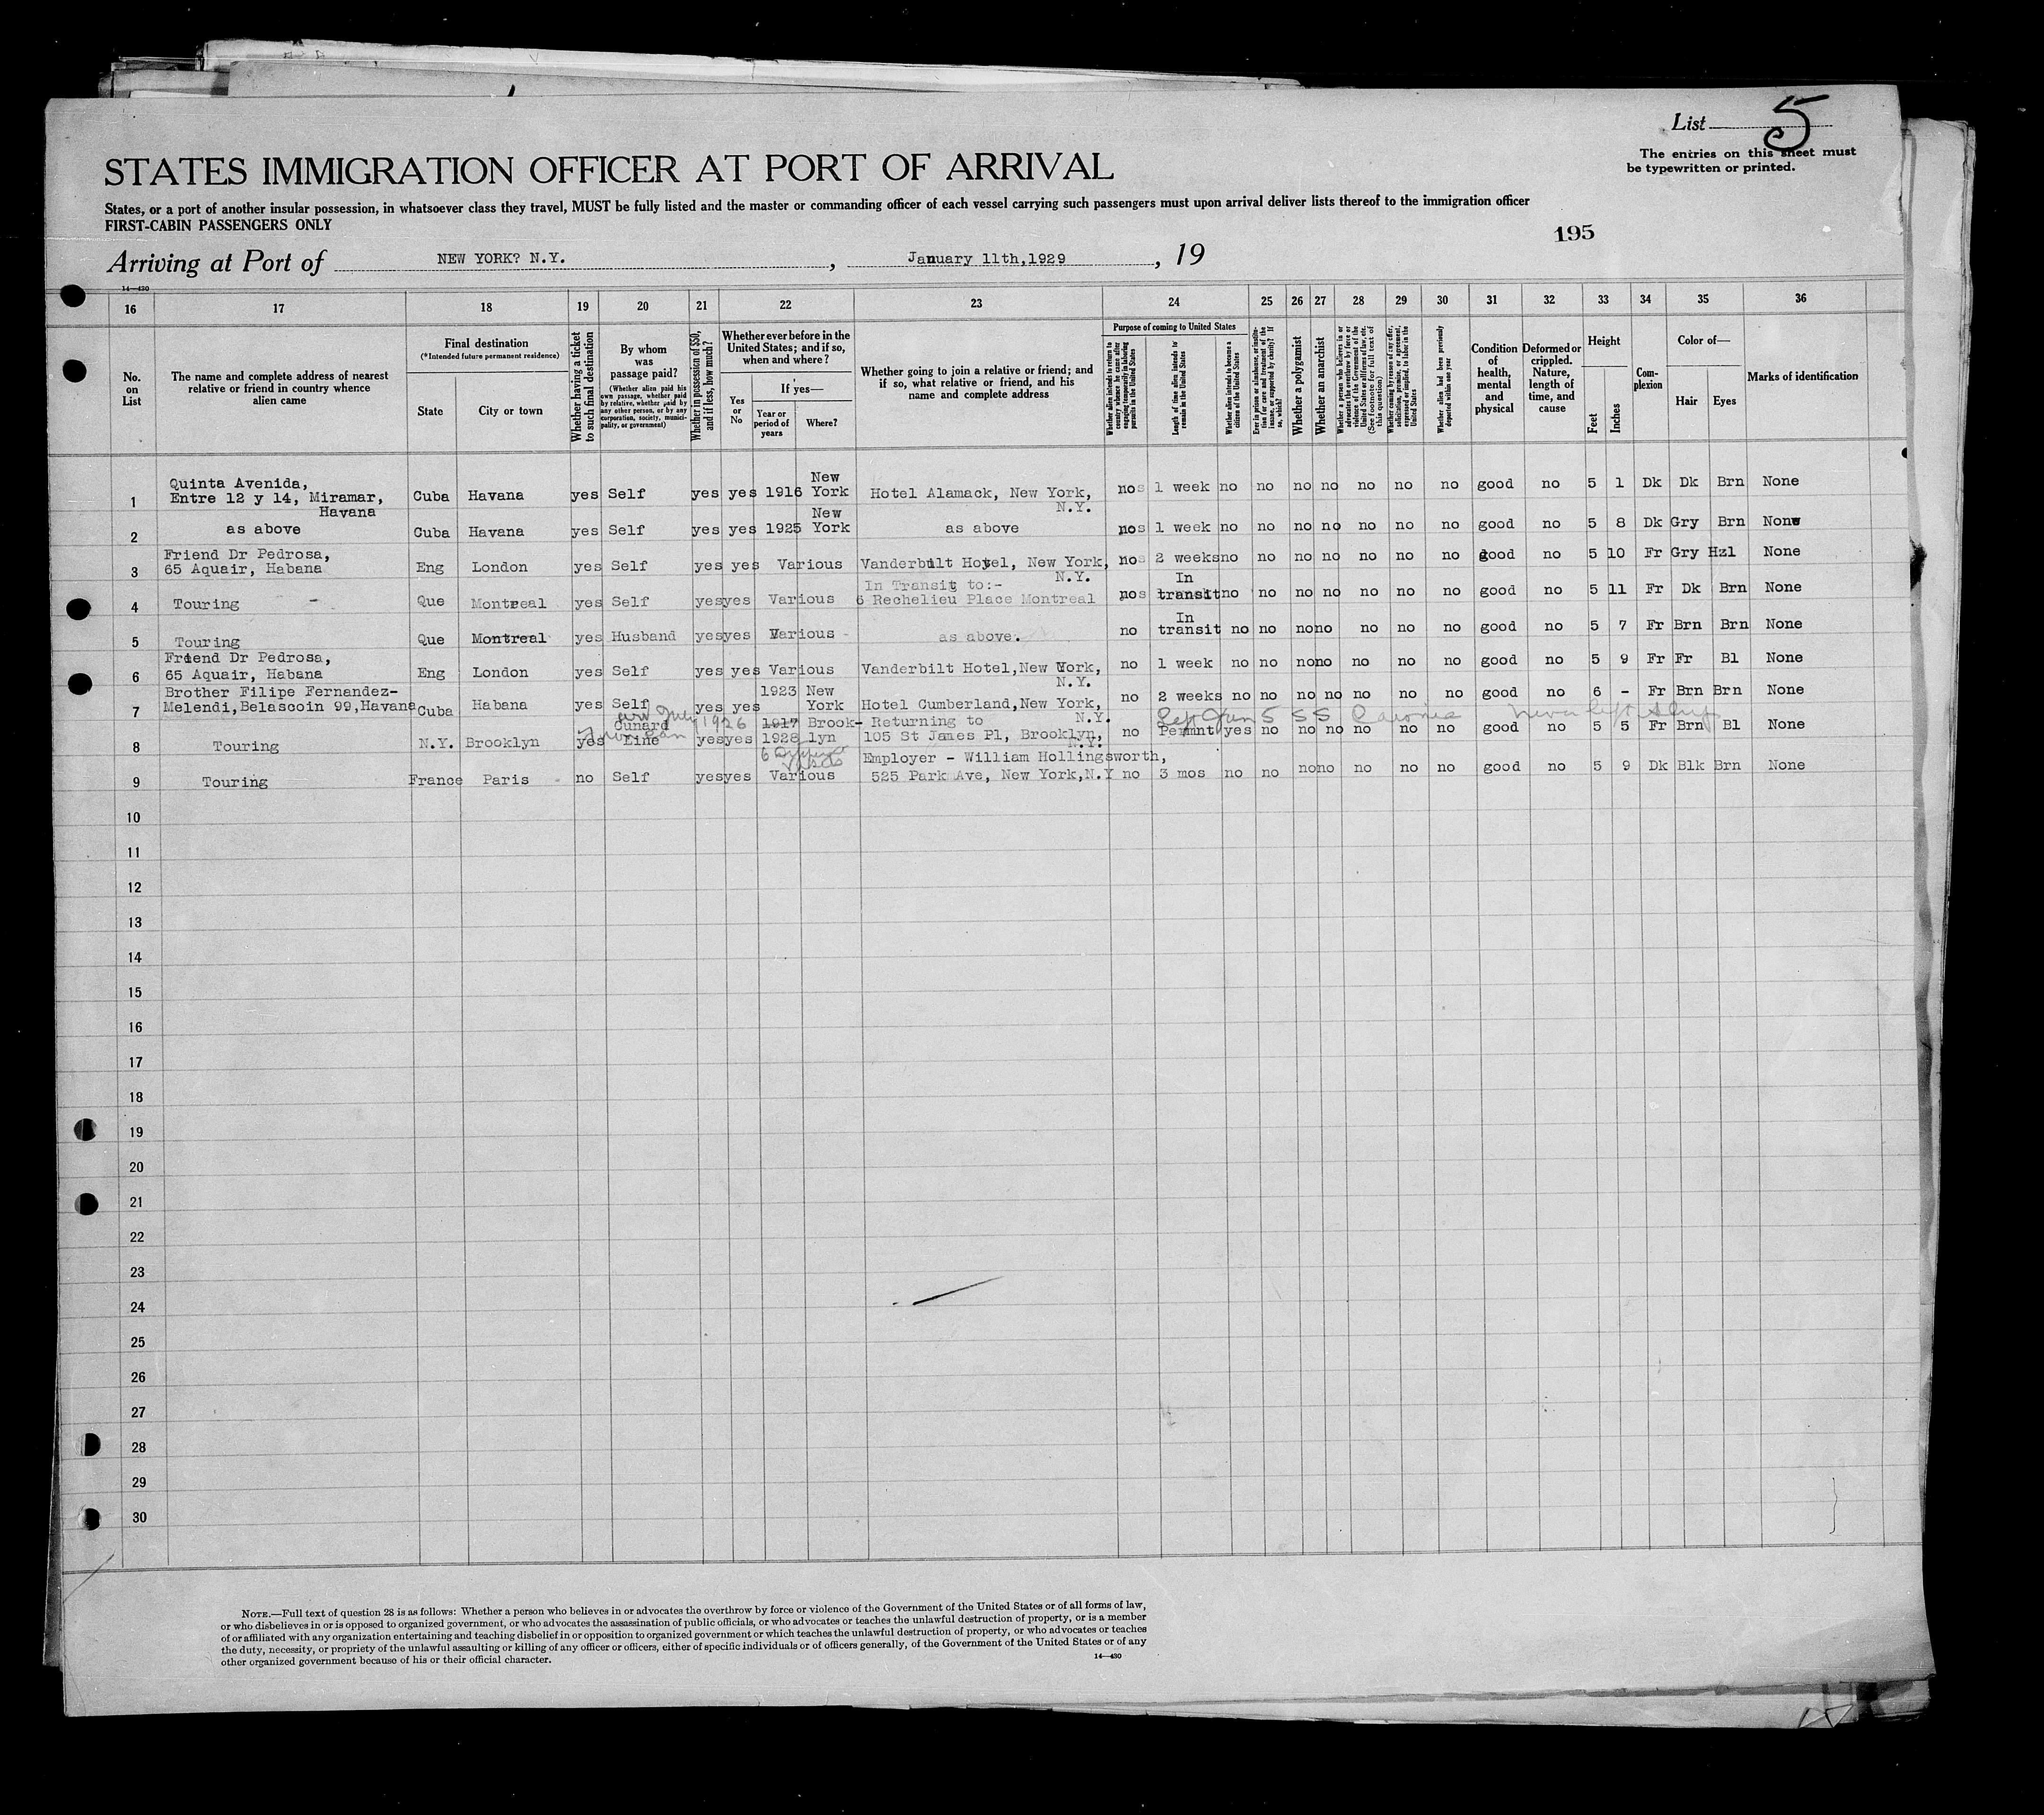 List 5
The entries on this sheet must
be typewritten or printed.
STATES IMMIGRATION OFFICER AT PORT OF ARRIVAL
States, or a port of another insular possession, in whatsoever class they travel, MUST be fully listed and the master or commanding officer of each vessel carrying such passengers must upon arrival deliver lists thereof to the immigration officer
FIRST-CABIN PASSENGERS ONLY
195
Arriving at Port of NEW YORK? N.Y. , January 11th,1929 , 19
14—430
16 17 18 19 20 21 22 23 24 25 26 27 28 29 30 31 32 33 34 35 36
No. on List
The name and complete address of nearest relative or friend in country whence alien came
Final destination
(*Intended future permanent residence)
State
City or town
Whether having a ticket to such final destination
By whom was passage paid?
(Whether alien paid his own passage, whether paid by relative, whether paid by any other person, or by any corporation, society, municipality, or government)
Whether in possession of $50, and if less, how much?
Whether ever before in the United States; and if so, when and where?
Yes or No
If yes—
Year or period of years
Where?
Whether going to join a relative or friend; and if so, what relative or friend, and his name and complete address
Purpose of coming to United States
Whether alien intends to return to country whence he came after engaging temporarily in laboring pursuits in the United States
Length of time alien intends to remain in the United States
Whether alien intends to become a citizen of the United States
Ever in prison or almshouse, or institution for care and treatment of the insane, or supported by charity? If so, which?
Whether a polygamist
Whether an anarchist
Whether a person who believes in or advocates the overthrow by force or violence of the Government of the United States or all forms of law, etc. (See footnote for full text of this question)
Whether coming by reason of any offer, solicitation, promise, or agreement, expressed or implied, to labor in the United States
Whether alien had been previously deported within one year
Condition of health, mental and physical
Deformed or crippled. Nature, length of time, and cause
Height
Feet
Inches
Complexion
Color of—
Hair
Eyes
Marks of identification
1 Quinta Avenida, Entre 12 y 14, Miramar, Havana Cuba Havana yes Self yes yes 1916 New York Hotel Alamack, New York, N.Y. no 1 week no no no no no no no good no 5 1 Dk Dk Brn None
2 as above Cuba Havana yes Self yes yes 1925 New York as above no 1 week no no no no no no no good no 5 8 Dk Gry Brn None
3 Friend Dr Pedrosa, 65 Aquair, Habana Eng London yes Self yes yes Various Vanderbilt Hotel, New York, N.Y. no 2 weeks no no no no no no no good no 5 10 Fr Gry Hzl None
4 Touring - Que Montreal yes Self yes yes Various In Transit to:- 6 Rechelieu Place Montreal no In transit no no no no no no no good no 5 11 Fr Dk Brn None
5 Touring Que Montreal yes Husband yes yes Various as above. no In transit no no no no no no no good no 5 7 Fr Brn Brn None
6 Friend Dr Pedrosa, 65 Aquair, Habana Eng London yes Self yes yes Various Vanderbilt Hotel,New York, N.Y. no 1 week no no no no no no no good no 5 9 Fr Fr Bl None
7 Brother Filipe Fernandez-Melendi,Belascoin 99,Havana Cuba Habana yes Self yes yes 1923 New York Hotel Cumberland,New York, N.Y. no 2 weeks no no no no no no no good no 6 - Fr Brn Brn None
July 1926 Jan 5 SS Caronia never left ship
8 Touring N.Y. Brooklyn yes Cunard Line yes yes 1917 1928 Brook-lyn Returning to 105 St James Pl, Brooklyn, N.Y. no Permnt yes no no no no no no good no 5 5 Fr Brn Bl None
9 Touring France Paris no Self yes yes Various Employer - William Hollingsworth, 525 Park Ave, New York,N.Y no 3 mos no no no no no no no good no 5 9 Dk Blk Brn None
10
11
12
13
14
15
16
17
18
19
20
21
22
23
24
25
26
27
28
29
30
NOTE.—Full text of question 28 is as follows: Whether a person who believes in or advocates the overthrow by force or violence of the Government of the United States or of all forms of law,
or who disbelieves in or is opposed to organized government, or who advocates the assassination of public officials, or who advocates or teaches the unlawful destruction of property, or is a member
of or affiliated with any organization entertaining and teaching disbelief in or opposition to organized government or which teaches the unlawful destruction of property, or who advocates or teaches
the duty, necessity, or propriety of the unlawful assaulting or killing of any officer or officers, either of specific individuals or of officers generally, of the Government of the United States or of any
other organized government because of his or their official character.
14—430